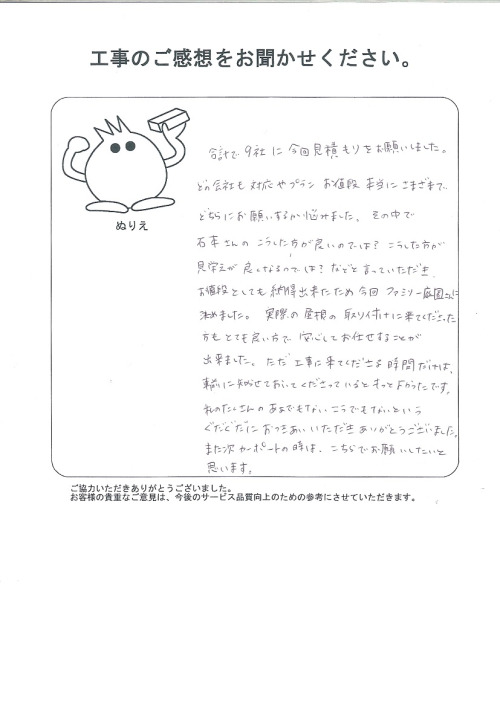 工事のご感想をお聞かせください。
ぬりえ
合計で9社に今回見積もりをお願いしました。
どの会社も対応やプラン お値段 本当にさまざまで
どちらにお願いするか悩みました。その中で
石本さんのこうした方が良いのでは？こうした方が
見栄えが良くなるのでは？などと言っていただき、
お値段としても納得出来たため今回ファミリー庭園さんに
決めました。実際の屋根の取り付けに来てくださった
方もとても良い方で安心してお任せすることが
出来ました。ただ工事に来てくださる時間だけは、
事前に知らせておいてくださっているともっとよかったです。
私のたくさんのあぁでもないこうでもないという
ぐだぐだにおつきあいいただきありがとうございました。
また次カーポートの時は、こちらでお願いしたいと
思います。
ご協力いただきありがとうございました。
お客様の貴重なご意見は、今後のサービス品質向上のための参考にさせていただきます。